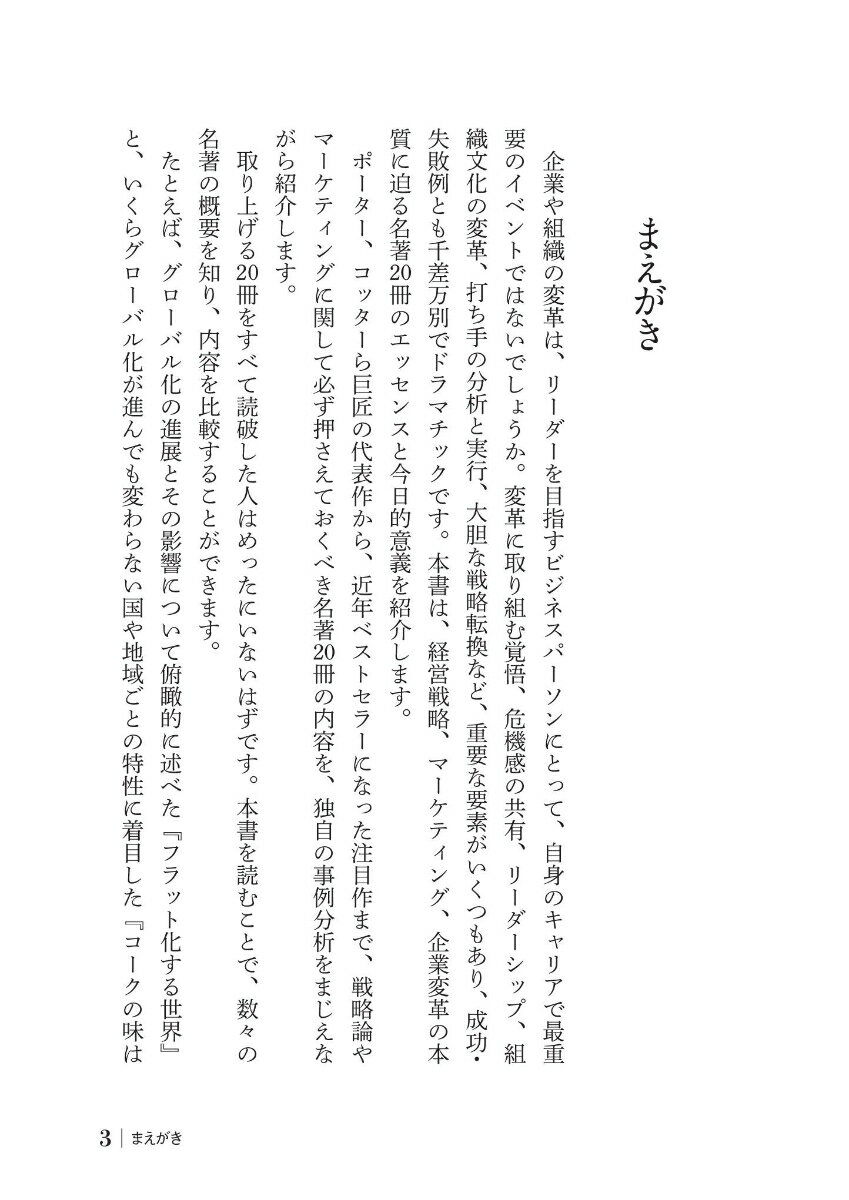 まえがき
企業や組織の変革は、リーダーを目指すビジネスパーソンにとって、自身のキャリアで最重
要のイベントではないでしょうか。変革に取り組む覚悟、危機感の共有、リーダーシップ、組
織文化の変革、打ち手の分析と実行、大胆な戦略転換など、重要な要素がいくつもあり、成功・
失敗例とも千差万別でドラマチックです。本書は、経営戦略、マーケティング、企業変革の本
質に迫る名著20冊のエッセンスと今日的意義を紹介します。
ポーター、コッターら巨匠の代表作から、近年ベストセラーになった注目作まで、戦略論や
マーケティングに関して必ず押さえておくべき名著20冊の内容を、独自の事例分析をまじえな
がら紹介します。
取り上げる20冊をすべて読破した人はめったにいないはずです。本書を読むことで、数々の
名著の概要を知り、内容を比較することができます。
たとえば、グローバル化の進展とその影響について俯瞰的に述べた『フラット化する世界』
と、いくらグローバル化が進んでも変わらない国や地域ごとの特性に着目した『コークの味は
3 まえがき